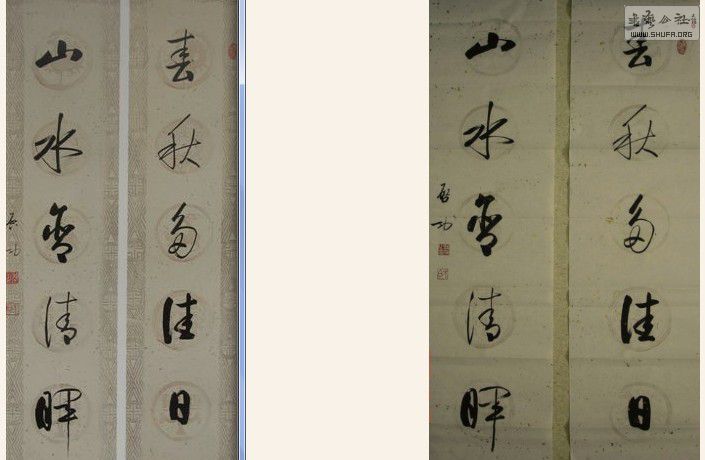 春秋多佳日
山水含清暉
启功
春秋多佳日
山水含清暉
启功
書藝公社
WWW.SHUFA.ORG